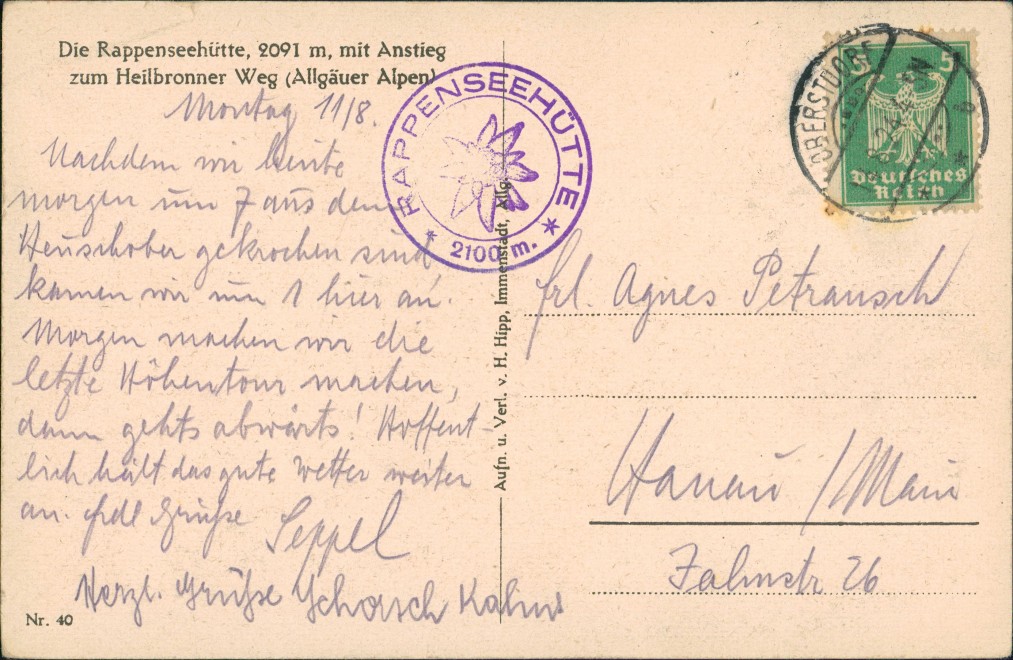 Die Rappenseehütte, 2091 m, mit Anstieg
zum Heilbronner Weg (Allgäuer Alpen)
Montag 11/8.
Nachdem wir heute
morgen um 7 aus dem
Heuschober gekrochen sind
kamen wir um 1 hier an.
Morgen machen wir die
letzte Höhentour machen,
dann gehts abwärts! Hoffent-
lich hält das gute Wetter weiter
an. frdl Grüße
Seppel
Herzl. Grüße Schorsch
Nr. 40
RAPPENSEEHÜTTE
* 2100 m. *
Aufn. u. Verl. v. H. Hipp, Immenstadt, Allg.
OBERSTDORF
5 5
Deutsches
Reich
Frl. Agnes Petrausch
Hanau / Main
26